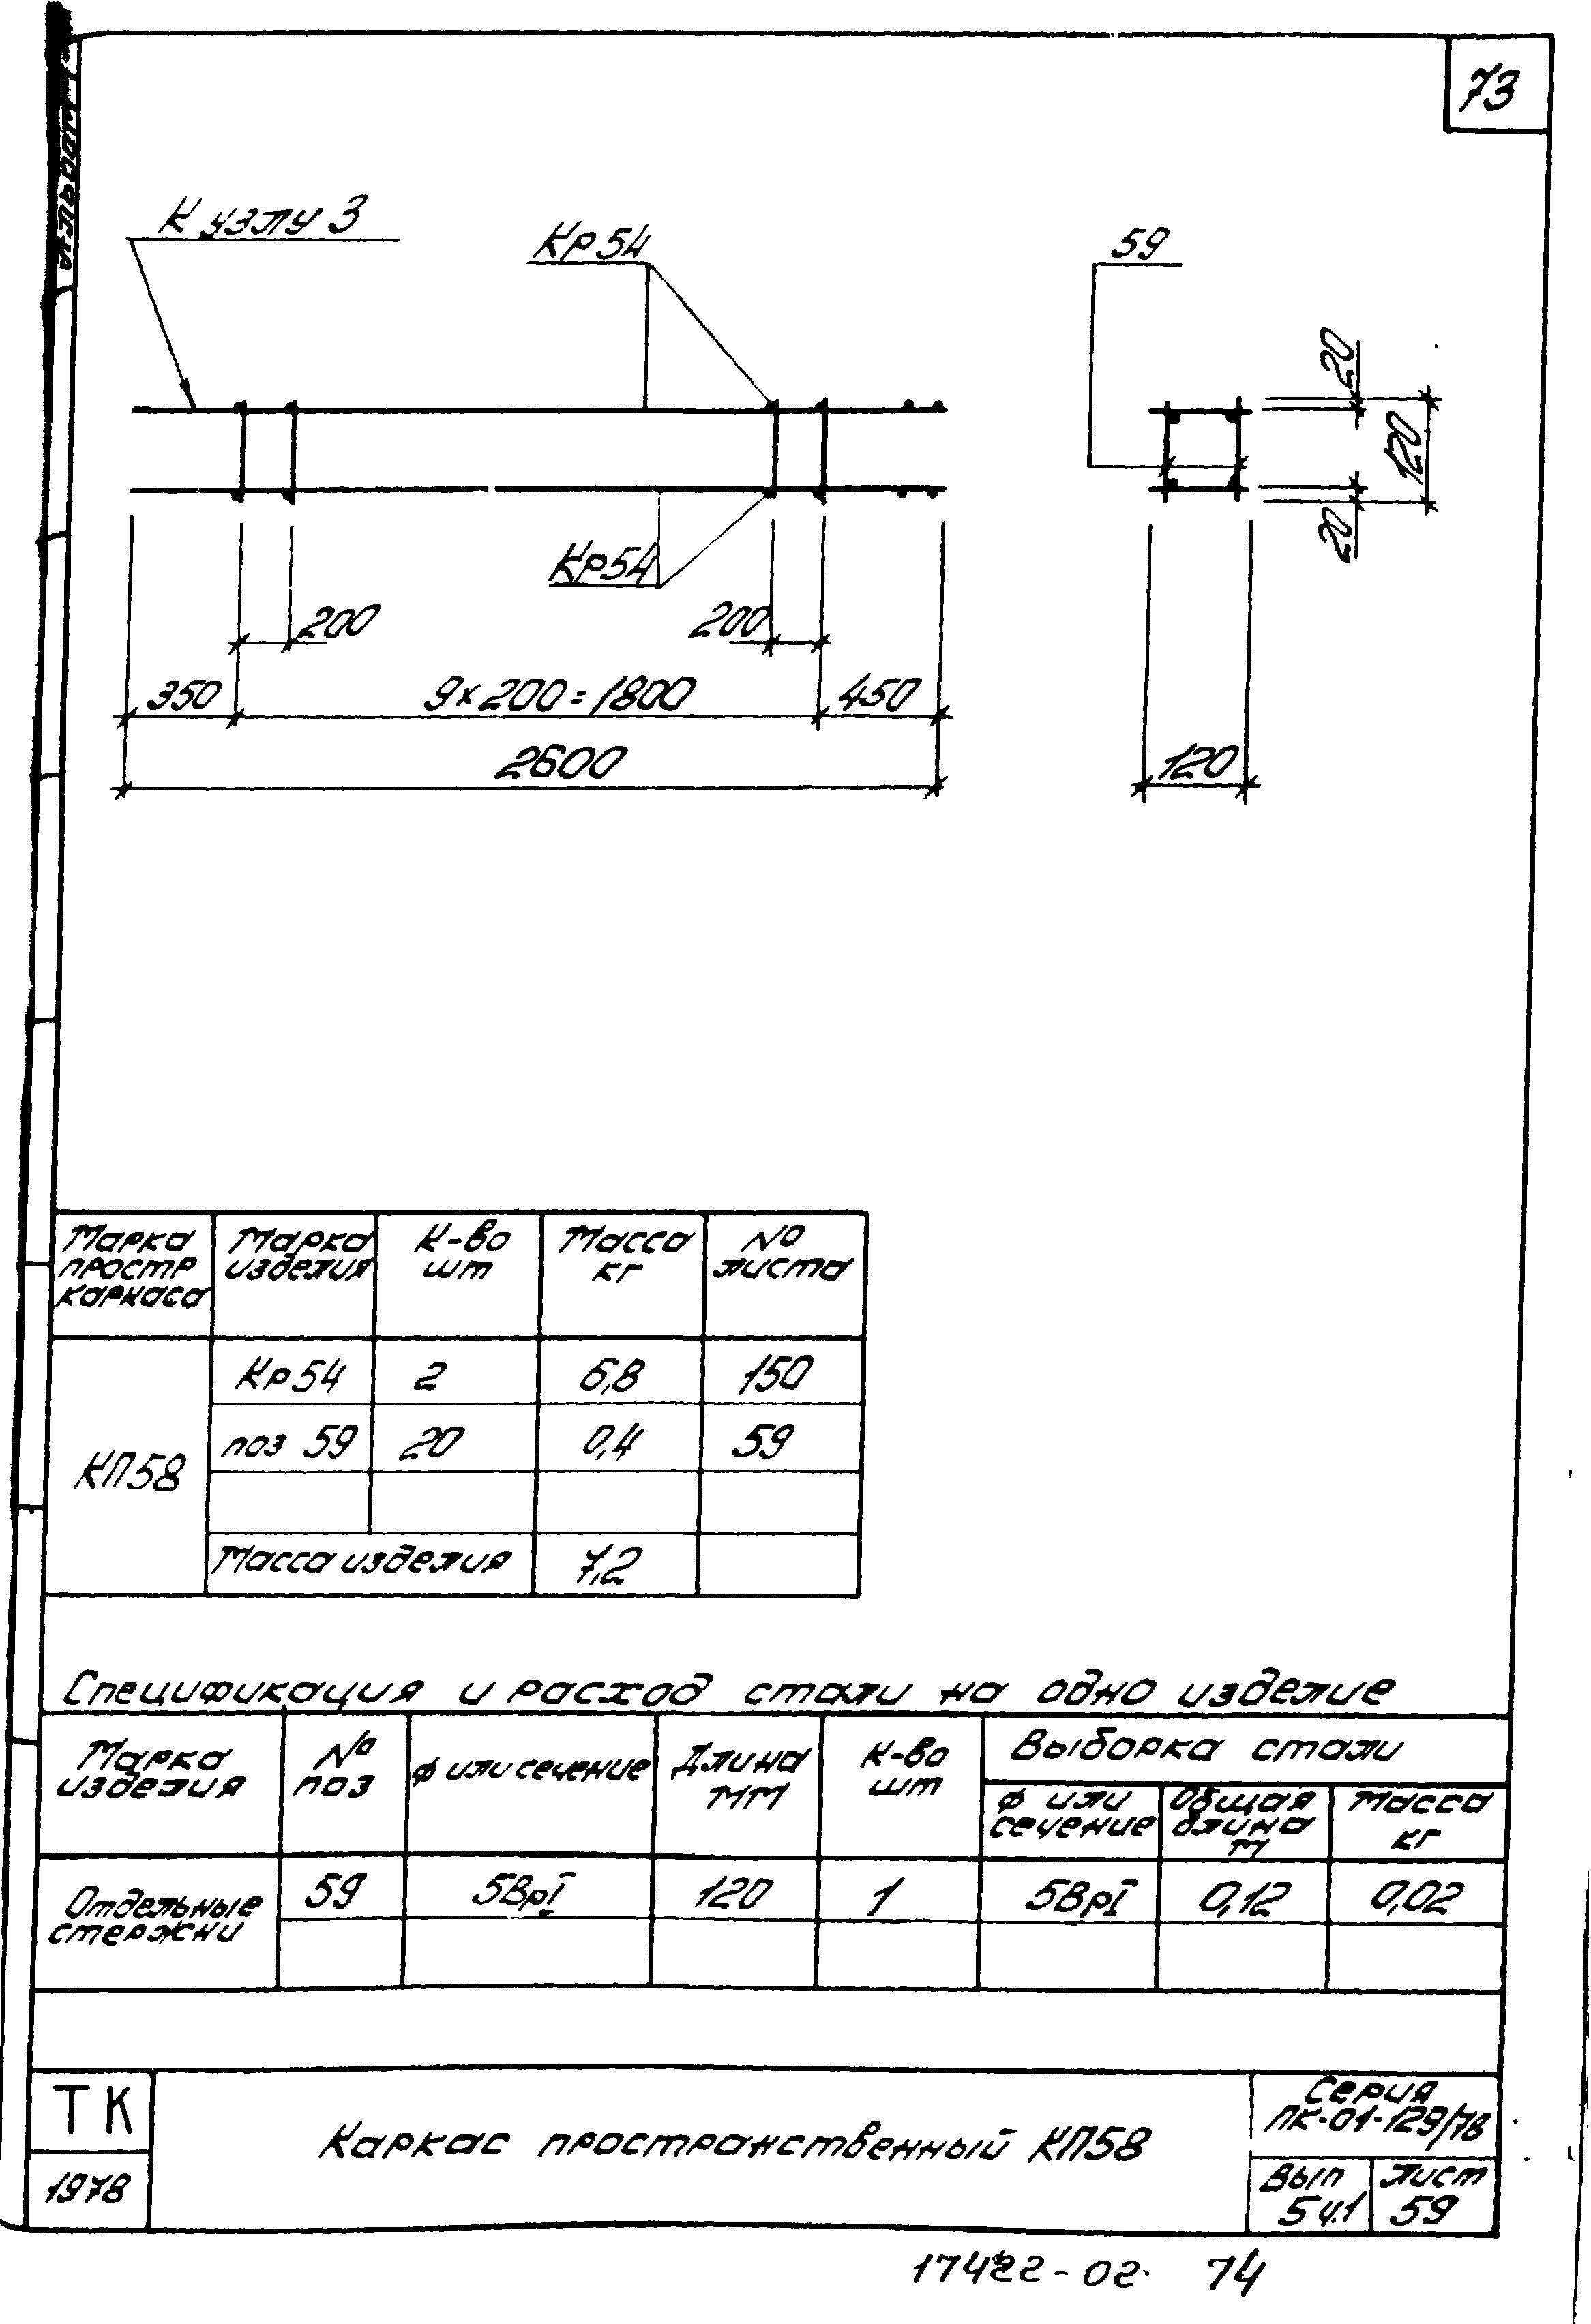 73
К узлу 3
Кр54
59
20
120
20
Кр54
200
200
350
9×200=1800
450
2600
120
Марка простр каркаса
Марка изделия
К-во шт
Масса кг
№ листа
КП58
Кр54
2
6,8
150
поз 59
20
0,4
59
Масса изделия
7,2
Спецификация и расход стали на одно изделие
Марка изделия
№ поз
ф или сечение
Длина мм
К-во шт
Выборка стали
ф или сечение
Общая длина м
Масса кг
Отдельные стержни
59
5ВрI
120
1
5ВрI
0,12
0,02
ТК
1978
Каркас пространственный КП58
Серия
ПК-01-129/78
Вып
5 ч.1
Лист
59
17422-02
74